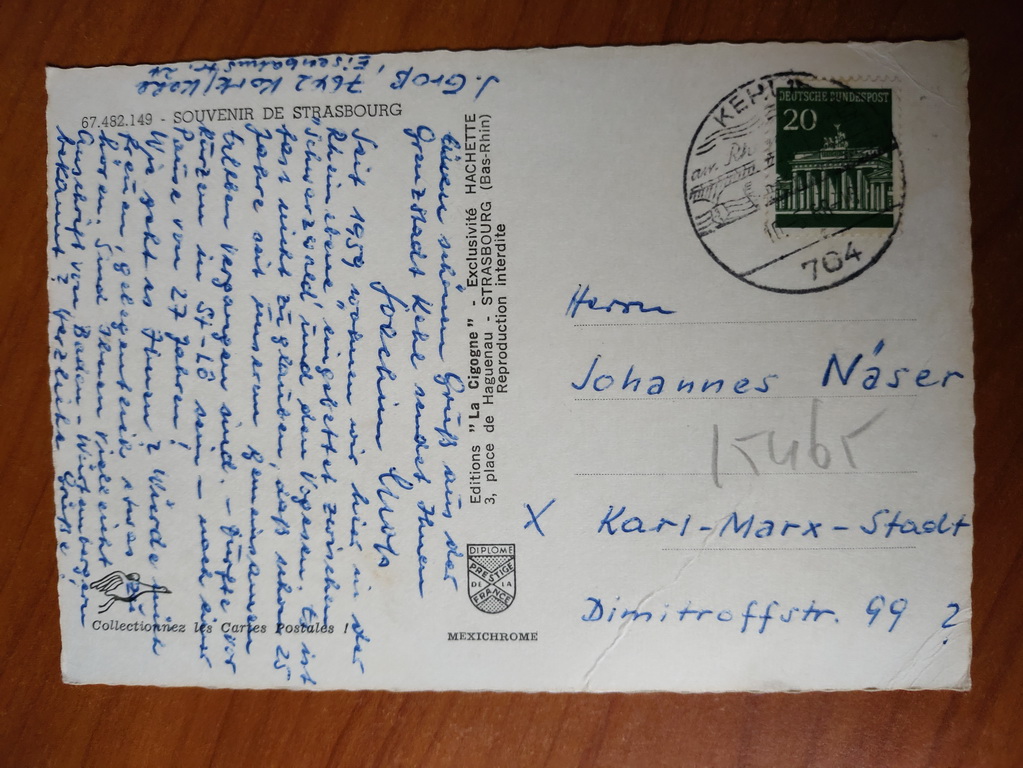 J. Groß, 7642 Kork/Kehl
Eisenbahnstr. 24
67.482.149 - SOUVENIR DE STRASBOURG
Einen schönen Gruß aus der
Grenzstadt Kehl sendet Ihnen
Joachim Groß.
Seit 1959 wohnen wir hier in der
Rheinebene, eingebettet zwischen
Schwarzwald und den Vogesen. Es ist
fast nicht zu glauben, daß schon 25
Jahre seit unserem gemeinsamen
Erleben vergangen sind. - Durfte vor
kurzem in St-Lô sein - nach einer
Pause von 27 Jahren!
Wie geht es Ihnen? Würde mich
freuen, gelegentlich etwas zu
hören. Sind Ihnen vielleicht
Anschrift von Baden-Würtembergern
bekannt? Herzliche Grüße
Collectionnez les Cartes Postales !
Editions "La Cigogne" - Exclusivité HACHETTE
3, place de Haguenau - STRASBOURG (Bas-Rhin)
Reproduction interdite
DIPLOME
PRESTIGE
DE LA
FRANCE
MEXICHROME
KEHL
am Rh
764
DEUTSCHE BUNDESPOST
20
Herrn
Johannes Näser
X Karl-Marx-Stadt
Dimitroffstr. 99 ?